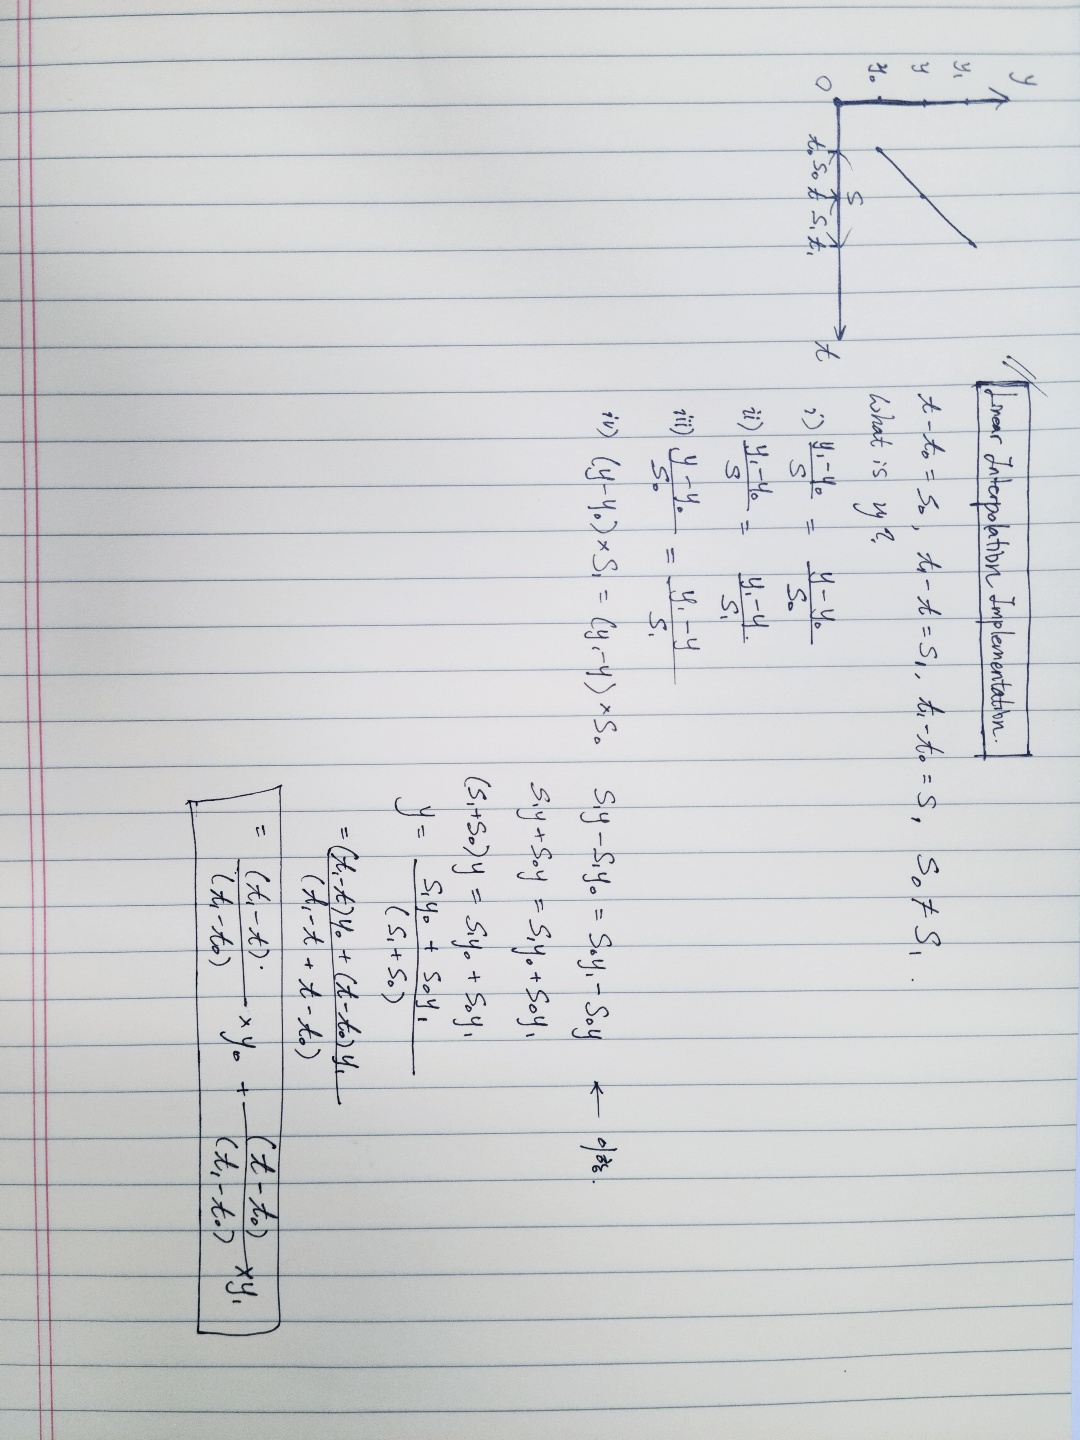 Linear Interpolation Implementation.
t - t₀ = S₀, t₁ - t = S₁, t₁ - t₀ = S, S₀ ≠ S₁.
What is y?
y
y₁
y
y₀
O
t₀ S₀ t S₁ t₁
S
t
i) (y₁ - y₀)/S = (y - y₀)/S₀
ii) (y₁ - y₀)/S = (y₁ - y)/S₁
iii) (y - y₀)/S₀ = (y₁ - y)/S₁
iv) (y - y₀) × S₁ = (y₁ - y) × S₀
S₁y - S₁y₀ = S₀y₁ - S₀y ←
S₁y + S₀y = S₁y₀ + S₀y₁
(S₁ + S₀)y = S₁y₀ + S₀y₁
y = (S₁y₀ + S₀y₁)/(S₁ + S₀)
= ((t₁ - t)y₀ + (t - t₀)y₁)/(t₁ - t + t - t₀)
= (t₁ - t)/(t₁ - t₀) × y₀ + (t - t₀)/(t₁ - t₀) × y₁